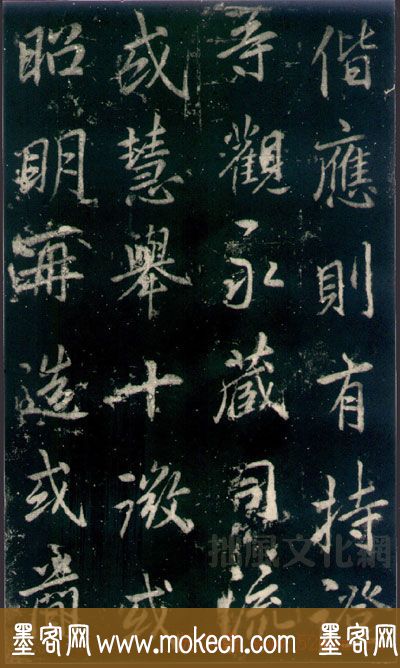 偕應則有持
等觀永藏司
或慧舉十徵或
昭明再造或
拙風文化網
墨客网 www.mokecn.com 墨客网